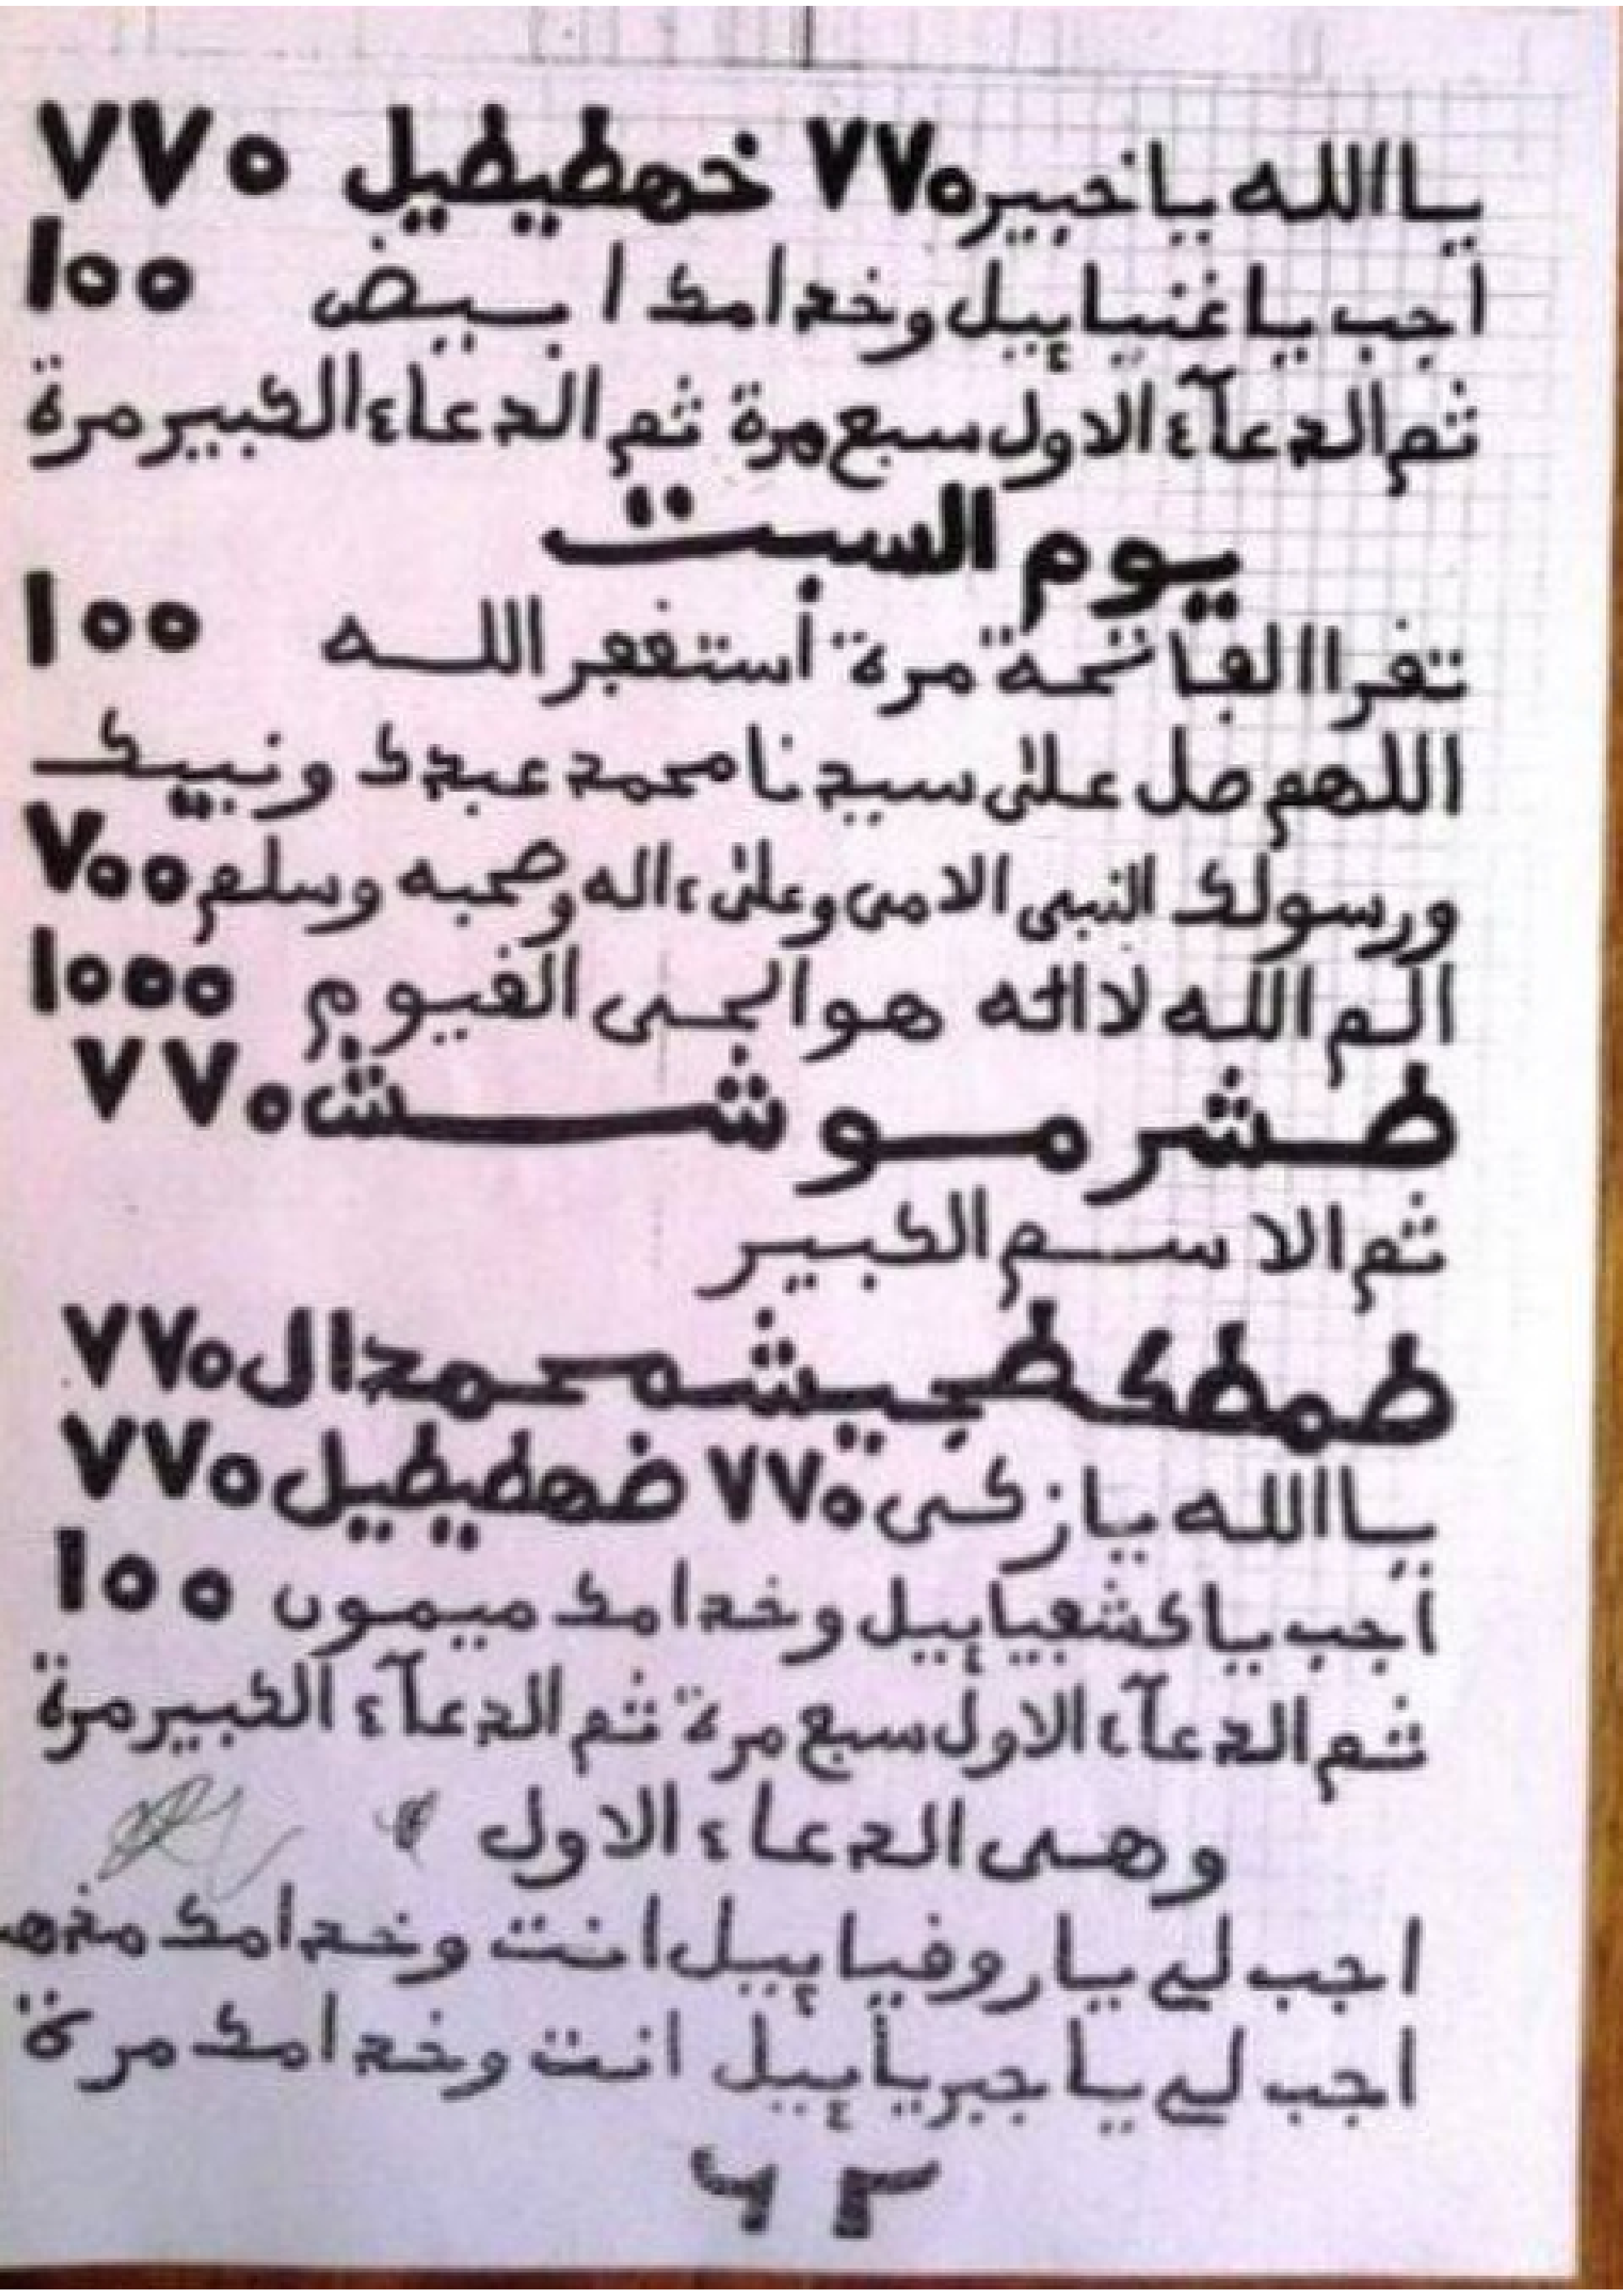 يا الله يا خبير ٧٧٥ خهطيطيل ٧٧٥
أجب يا غنياييل وخدامك ا بيض ١٥٥
ثم الدعآء الاول سبع مرة ثم الدعاء الكبير مرة
يوم السبت
تقرا الفاتحة مرة أستغفر الله ١٥٥
اللهم صل على سيدنا محمد عبدك ونبيك
ورسولك النبى الامى وعلى ءاله وصحبه وسلم ٧٥٥
الم الله لا اله هو الحى القيوم ١٥٥٥
طشرموشش ٧٧٥
ثم الاسم الكبير
طمطكطجيشمحمدال ٧٧٥
يا الله يا زكى ٧٧٥ ضهطيطيل ٧٧٥
أجب يا كشفياييل وخدامك ميمون ١٥٥
ثم الدعآء الاول سبع مرة ثم الدعآء الكبير مرة
وهى الدعاء الاول
اجب لي يا روفياييل انت وخدامك مذهب
اجب لي يا جبرياييل انت وخدامك مرة
٦٢